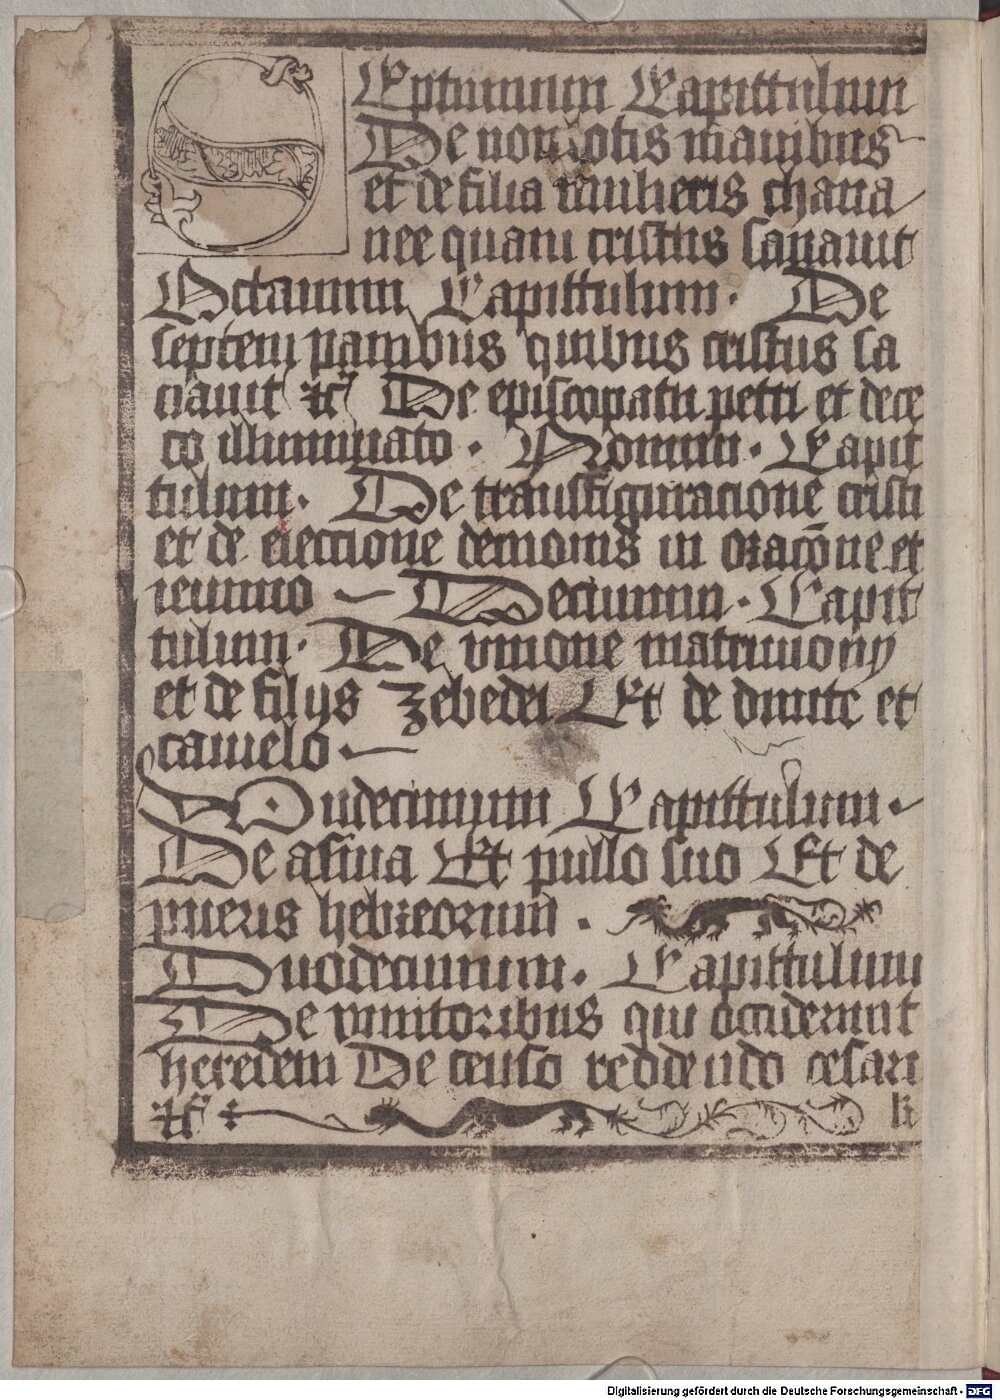 SEptimum Capittulum
De non lotis manibus
et de filia mulieris chana
nee quam cristus sanauit
Octauum Capittulum. De
septem panibus quibus cristus sa
ciauit ⁊c̃ De episcopatu petri et de ce
co illuminato. Nonum. Capit
tulum. De transfiguracione cristi
et de eiectione demonis in oraçōne et
ieiunio Decimum. Capit
tulum. De vnione matrimonij
et de filijs zebedei Et de diuite et
camelo.
Vndecimum Capittulum.
De asina Et pullo suo Et de
pueris hebreorum.
Duodecimum. Capittulum
De vinitoribus qui occiderunt
heredem De censo reddendo cesari
⁊c̃ k
Digitalisierung gefördert durch die Deutsche Forschungsgemeinschaft - DFG